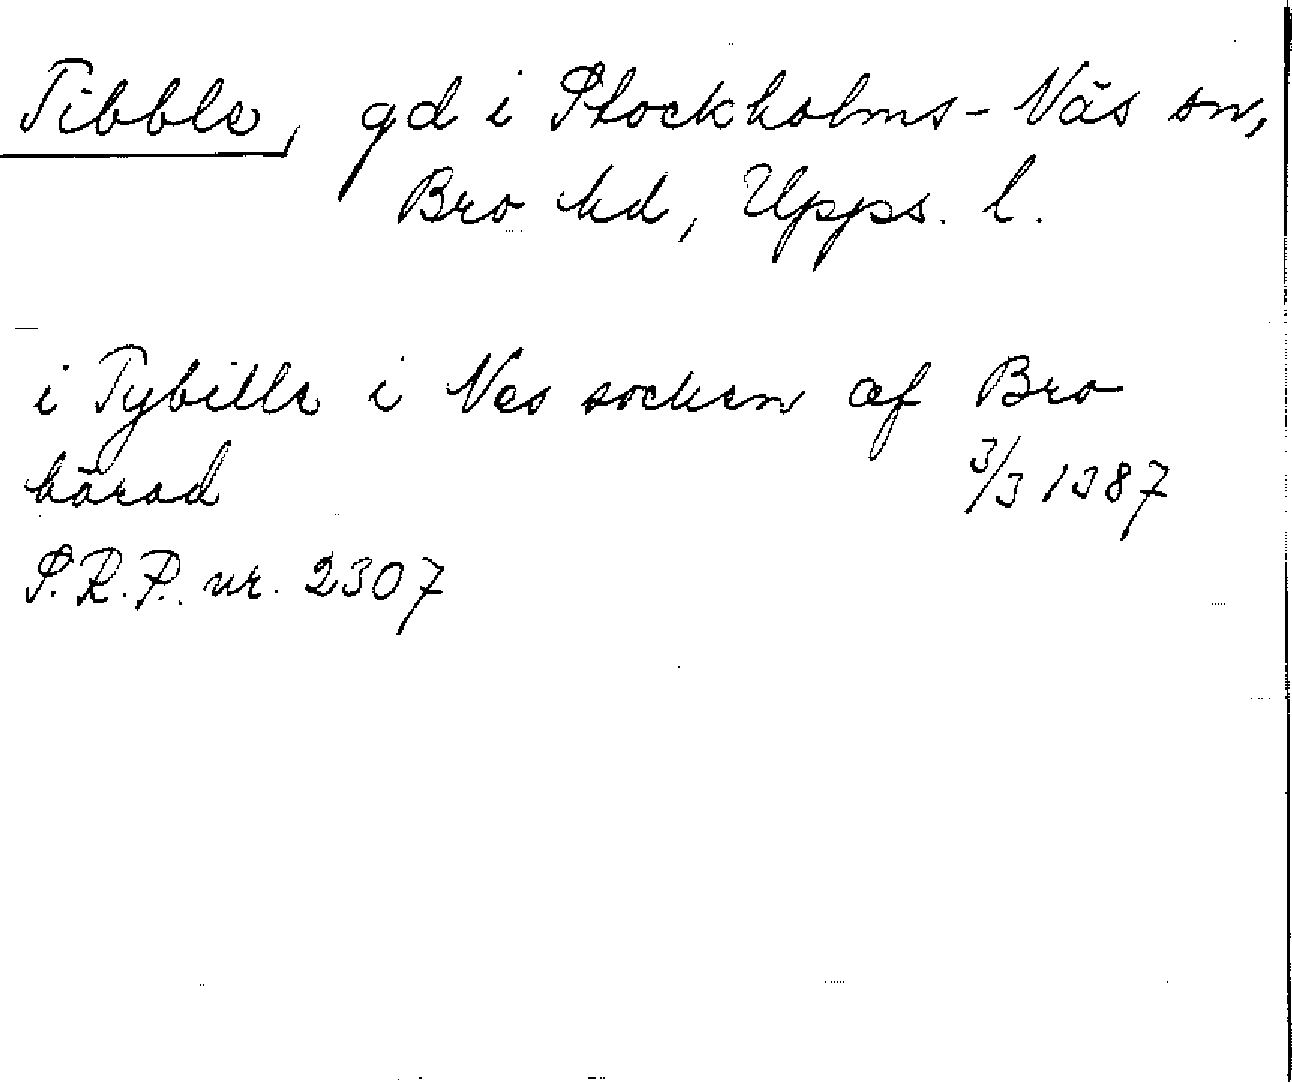 Tibble, gd i Stockholms-Näs sn,
Bro hd, Upps. l.
i Tybille i Nes socken af Bro
härad 3/3 1387
S.R.P. nr. 2307